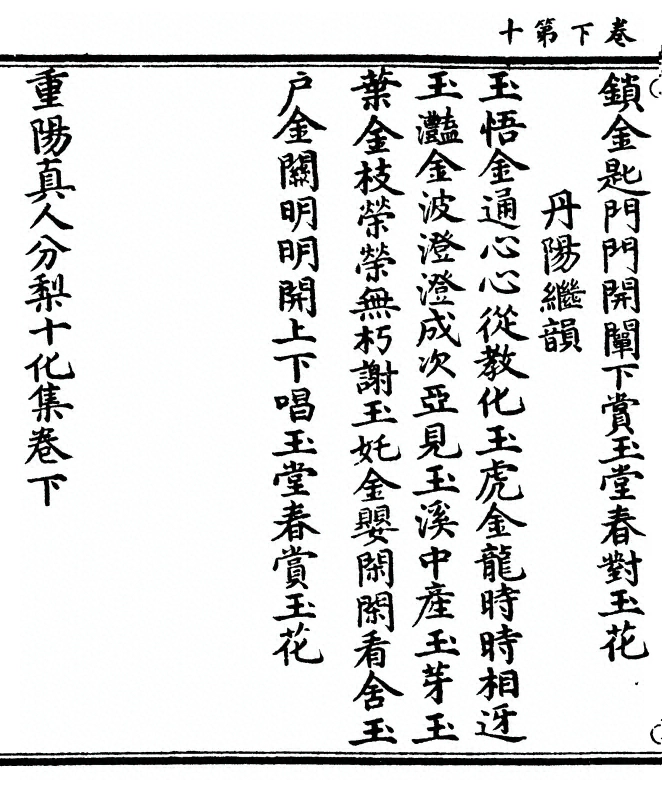 卷下第十
鎖金匙門門開闡下賞玉堂春對玉花
丹陽繼韻
玉悟金通心心從教化玉虎金龍時時相迓
玉灩金波澄澄成次亞見玉溪中產玉芽玉
葉金枝榮榮無朽謝玉妊金嬰閑閑看舍玉
户金關明明開上下唱玉堂春賞玉花
重陽真人分梨十化集卷下